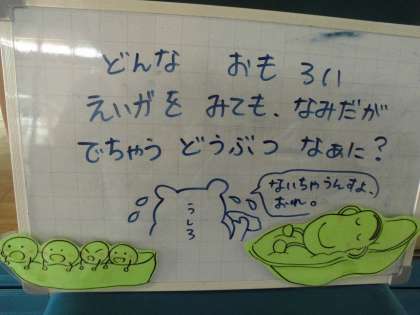 どんな おもろい
えいがを みても、なみだが
でちゃう どうぶつ なぁに?
ないちゃうんすよ、
おれ。
うしろ